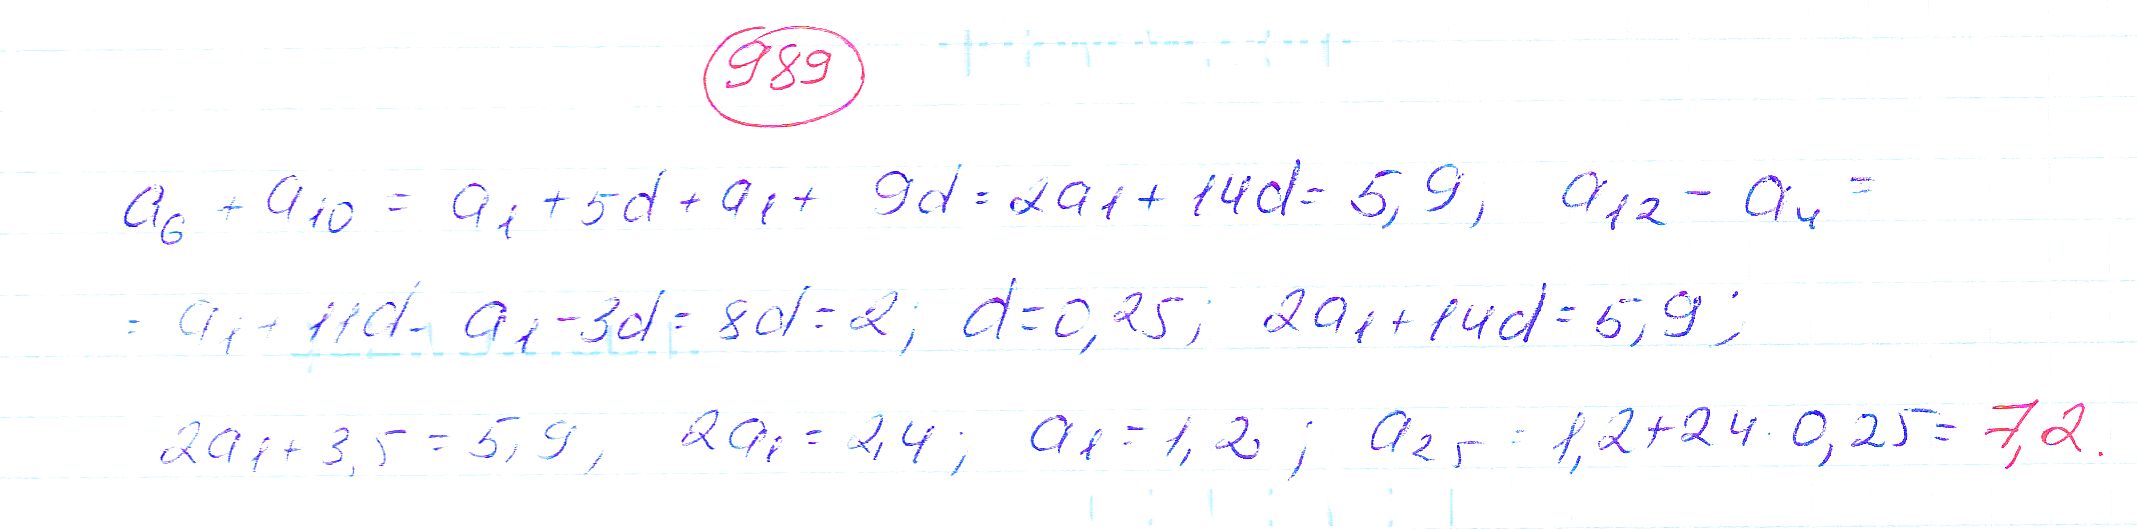 989
a₆ + a₁₀ = a₁ + 5d + a₁ + 9d = 2a₁ + 14d = 5,9, a₁₂ - a₄ =
= a₁ + 11d - a₁ - 3d = 8d = 2; d = 0,25; 2a₁ + 14d = 5,9;
2a₁ + 3,5 = 5,9, 2a₁ = 2,4; a₁ = 1,2; a₂₅ = 1,2 + 24 · 0,25 = 7,2.